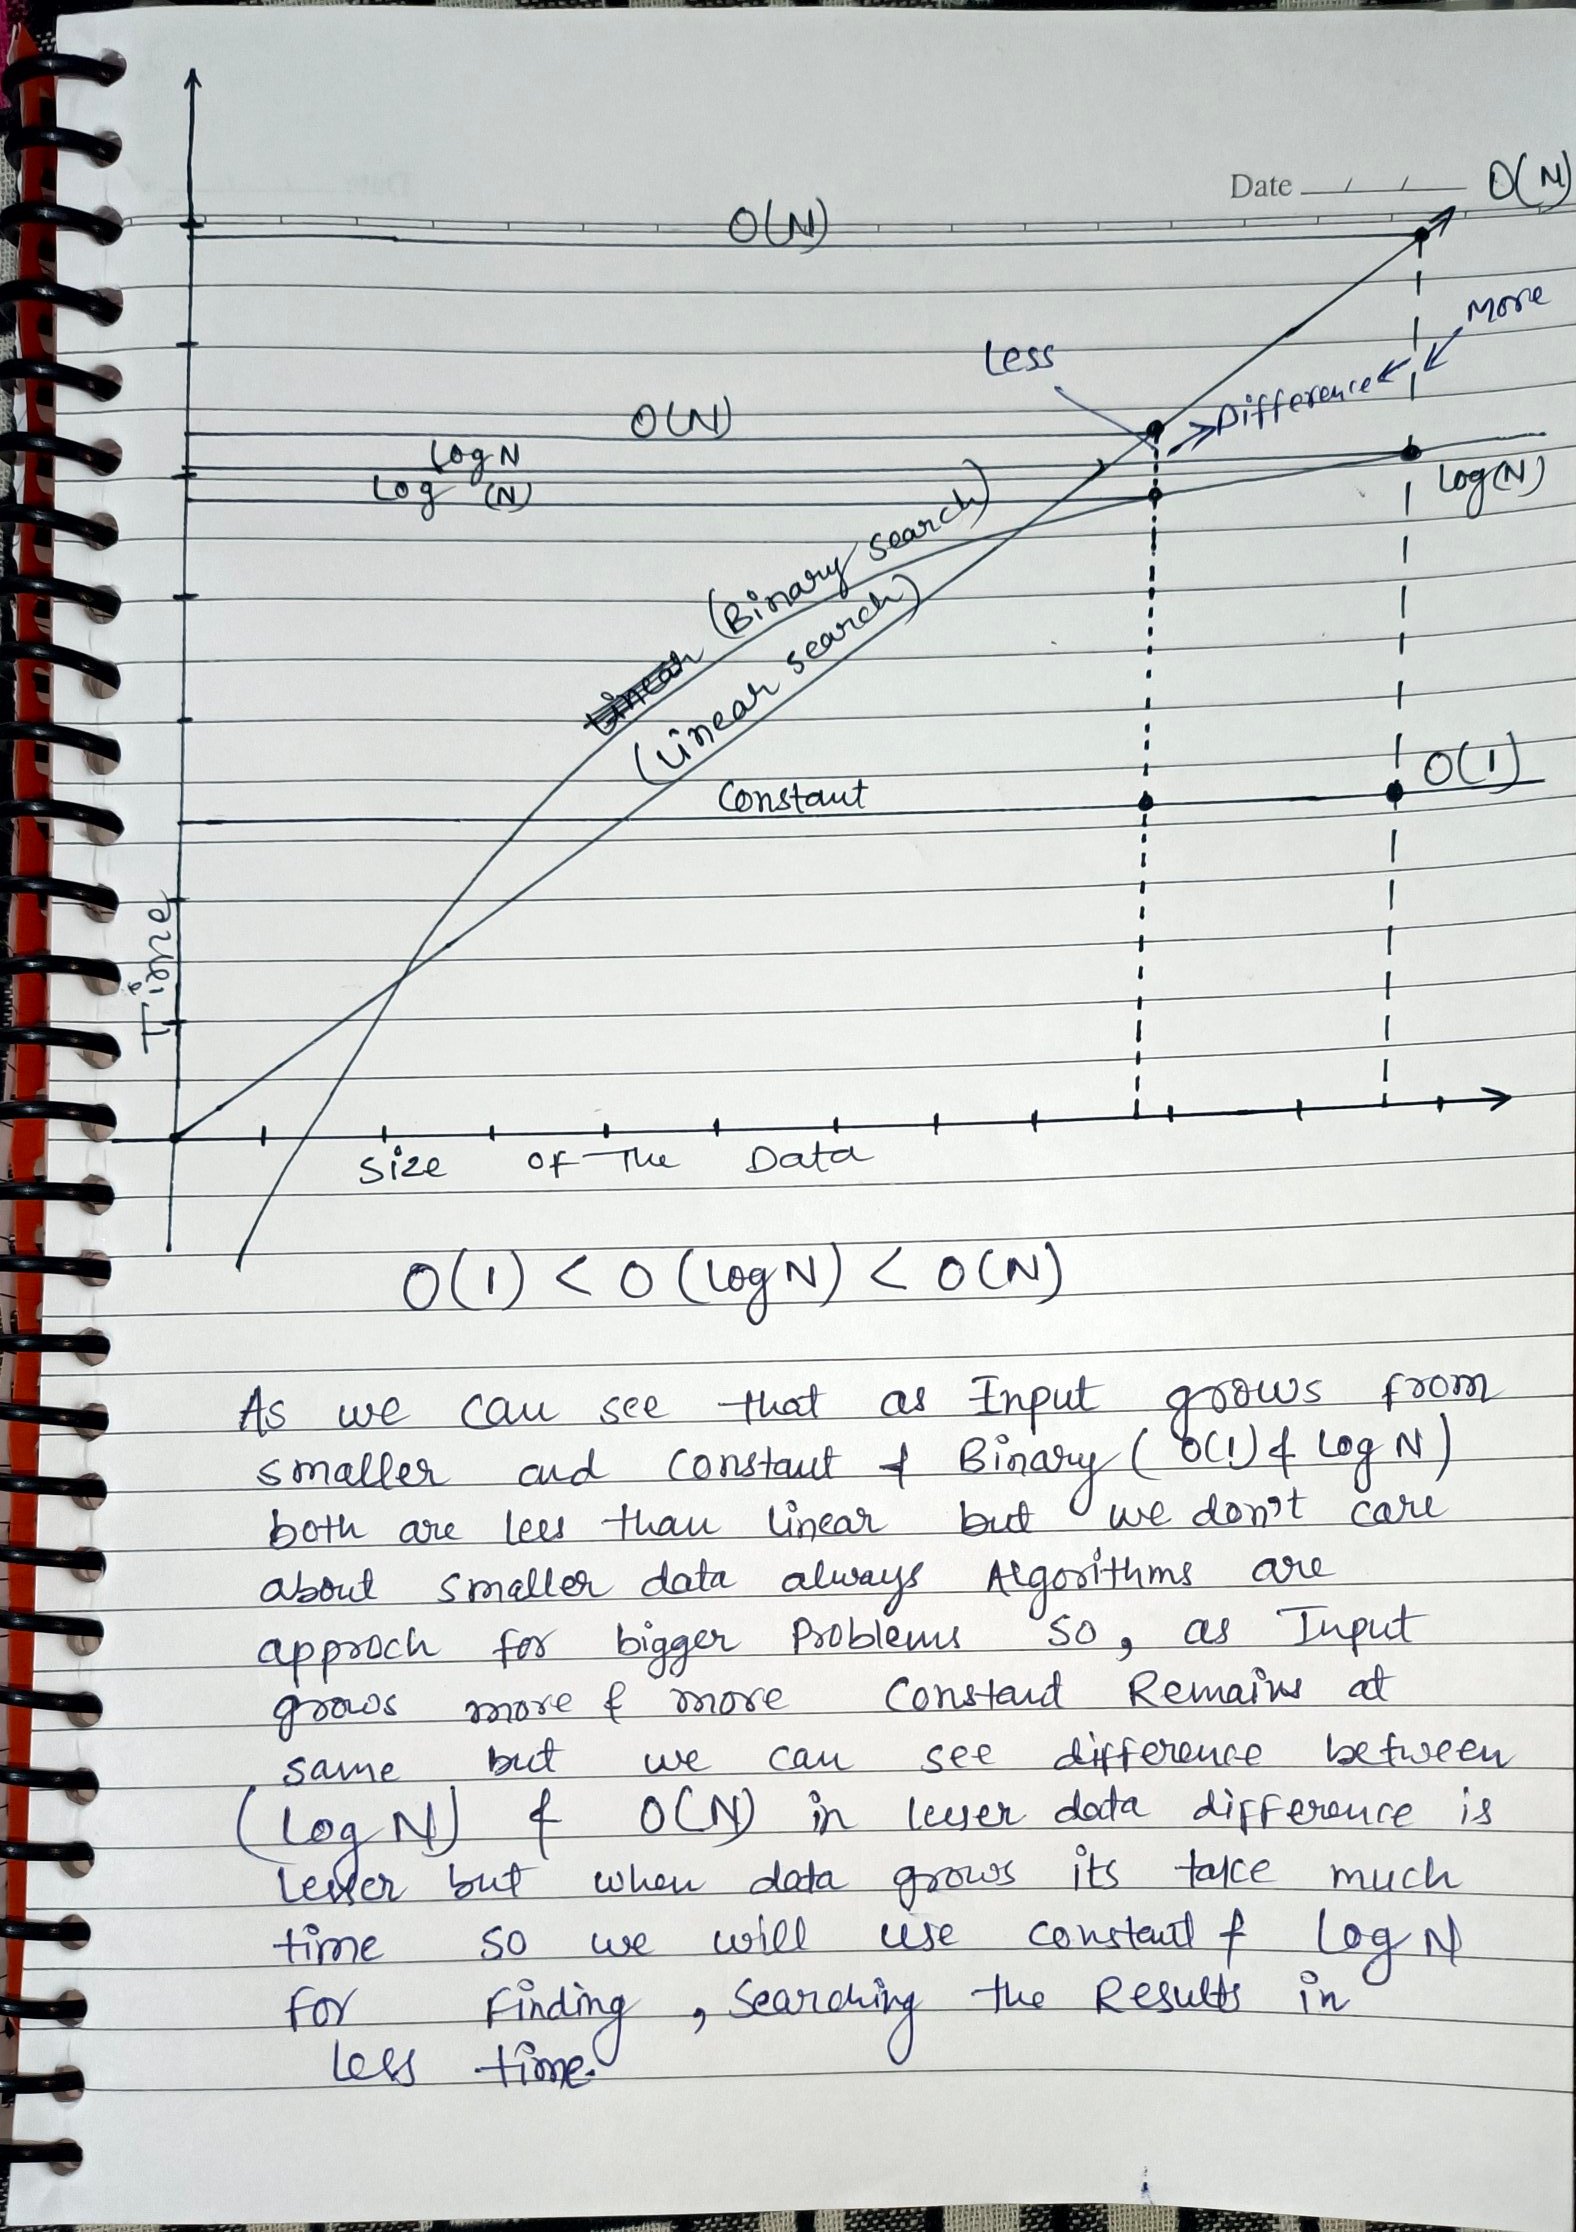 Date
O(N)
O(N)
More
Less
Difference
O(N)
Log N
Log (N)
Log(N)
(Binary search)
Linear
(Linear search)
Constant
O(1)
Time
Size of The Data
O(1) < O(Log N) < O(N)
As we can see that as Input grows from
smaller and constant & Binary ( O(1) & Log N)
both are less than linear but we don't care
about smaller data always Algorithms are
approch for bigger Problems so, as Input
grows more & more Constant Remains at
same but we can see difference between
(Log N) & O(N) in lesser data difference is
lesser but when data grows its take much
time so we will use constant & Log N
for Finding, Searching the Results in
less time.